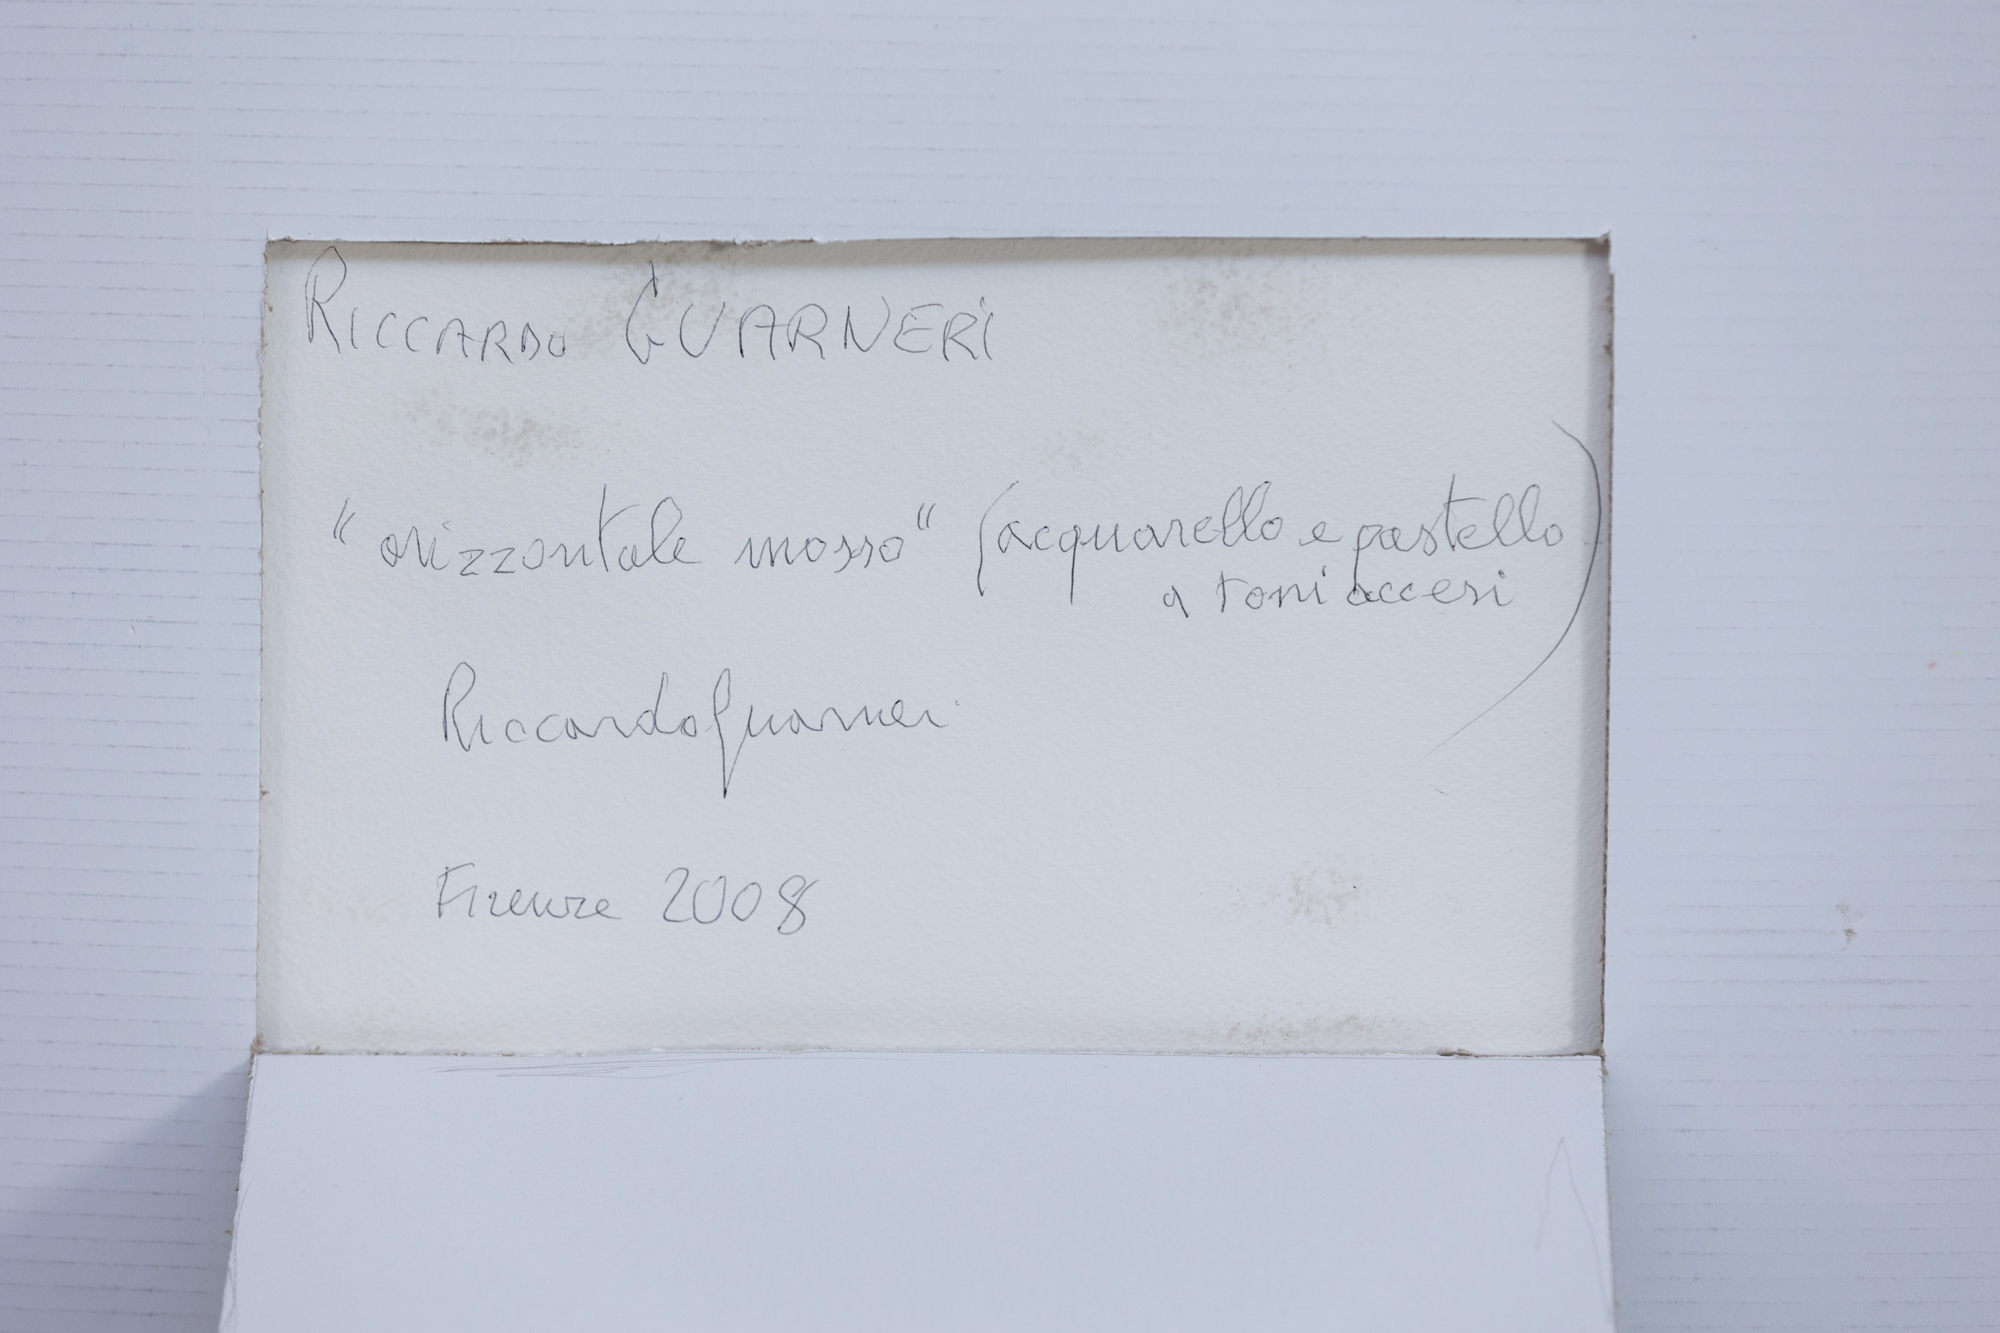 RICCARDO GUARNERI
"orizzontale mosso" (acquarello e pastello
a toni accesi)
Riccardo Guarneri
Firenze 2008